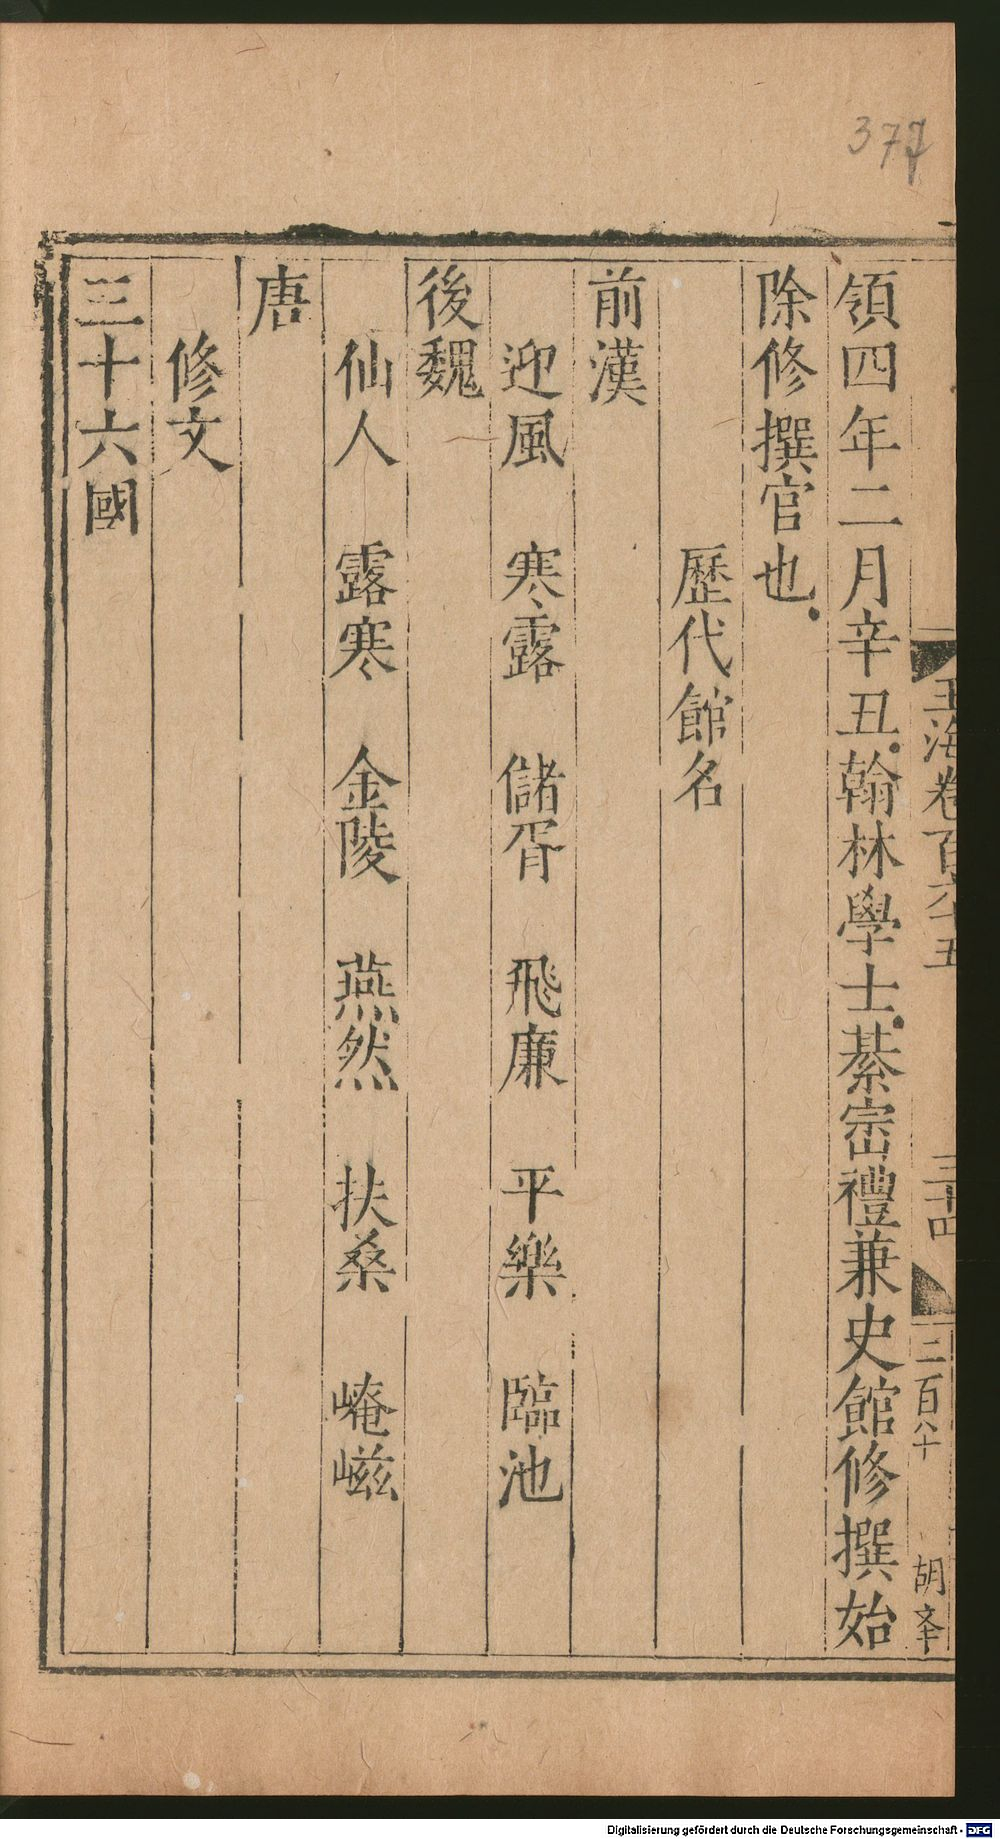 377
玉海卷百六十五
三十四
二百八十
胡
領四年二月辛丑翰林學士綦崈禮兼史館修撰始
除修撰官也
歷代館名
前漢
迎風 寒露 儲胥 飛廉 平樂 臨池
後魏
仙人 露寒 金陵 燕然 扶桑 崦嵫
唐
修文
三十六國
Digitalisierung gefördert durch die Deutsche Forschungsgemeinschaft - DFG